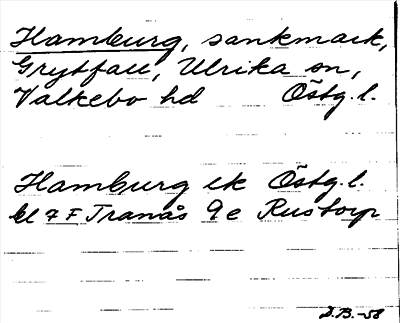 Hamburg, sankmark,
Grytfall, Ulrika sn,
Valkebo hd Östg. l.
Hamburg ek Östg. l.
bl 7 F Tranås 9 e Rustorp
D.B. -58